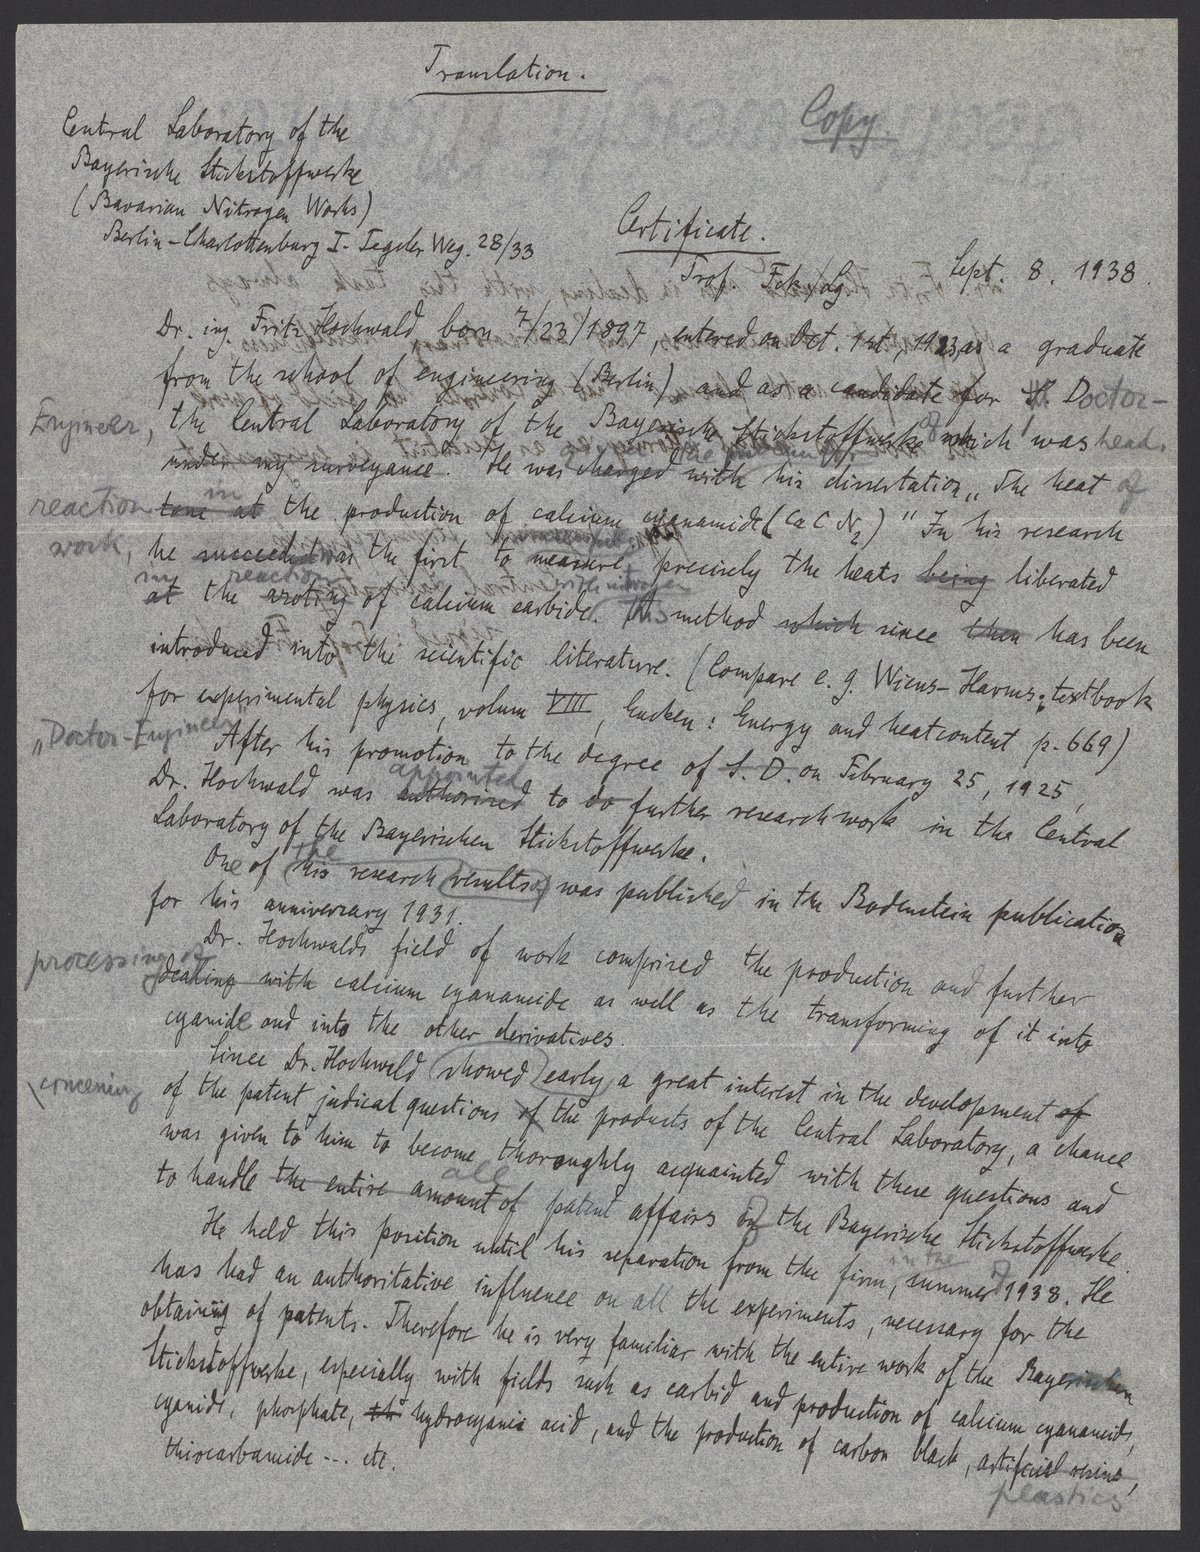 Translation.
Copy
Central Laboratory of the
Bayerische Stickstoffwerke
(Bavarian Nitrogen Works)
Berlin-Charlottenburg I - Tegeler Weg. 28/33
Certificate.
Sept. 8. 1938.
Prof.
Dr. ing. Fritz Hochwald born 7/23/1897, entered on Oct. 1st., 1923, as a graduate
from the school of engineering (Berlin) and as a candidate for Doctor-
Engineer, the Central Laboratory of the Bayerische Stickstoffwerke of which I was head.
under my surveyance. He was charged with his dissertation „The heat of
reaction tone at in the production of calcium cyanamide (CaCN2)" In his research
work, he succeeded was the first to measure precisely the heats being liberated
at in the azoting reaction of calcium carbide. This method which since then has been
introduced into the scientific literature. (Compare e. g. Wiens-Harms: textbook
for experimental physics, volum VIII, Eucken: Energy and heatcontent p. 669)
„Doctor-Engineer
After his promotion to the degree of S. D. on February 25, 1925,
Dr. Hochwald was authorised appointed to do further research work in the Central
Laboratory of the Bayerischen Stickstoffwerke.
One of his the research results was published in the Bodenstein publication
for his anniversary 1931.
Dr. Hochwalds field of work comprised the production and further
processing of dealing with calcium cyanamide as well as the transforming of it into
cyanide and into the other derivatives.
Since Dr. Hochwald showed early a great interest in the development of
concening of the patent judical questions of the products of the Central Laboratory, a chance
was given to him to become thoroughly acquainted with these questions and
to handle the entire amount all of patent affairs of the Bayerische Stickstoffwerke.
He held this position until his separation from the firm, in the summer of 1938. He
has had an authoritative influence on all the experiments, necessary for the
obtaining of patents. Therefore he is very familiar with the entire work of the Bayerischen
Stickstoffwerke, especially with fields such as carbid and production of calcium cyanamide,
cyanide, phosphate, hydrocyanic acid, and the production of carbon black, artificial resins,
plastics
thiocarbamide --- etc.